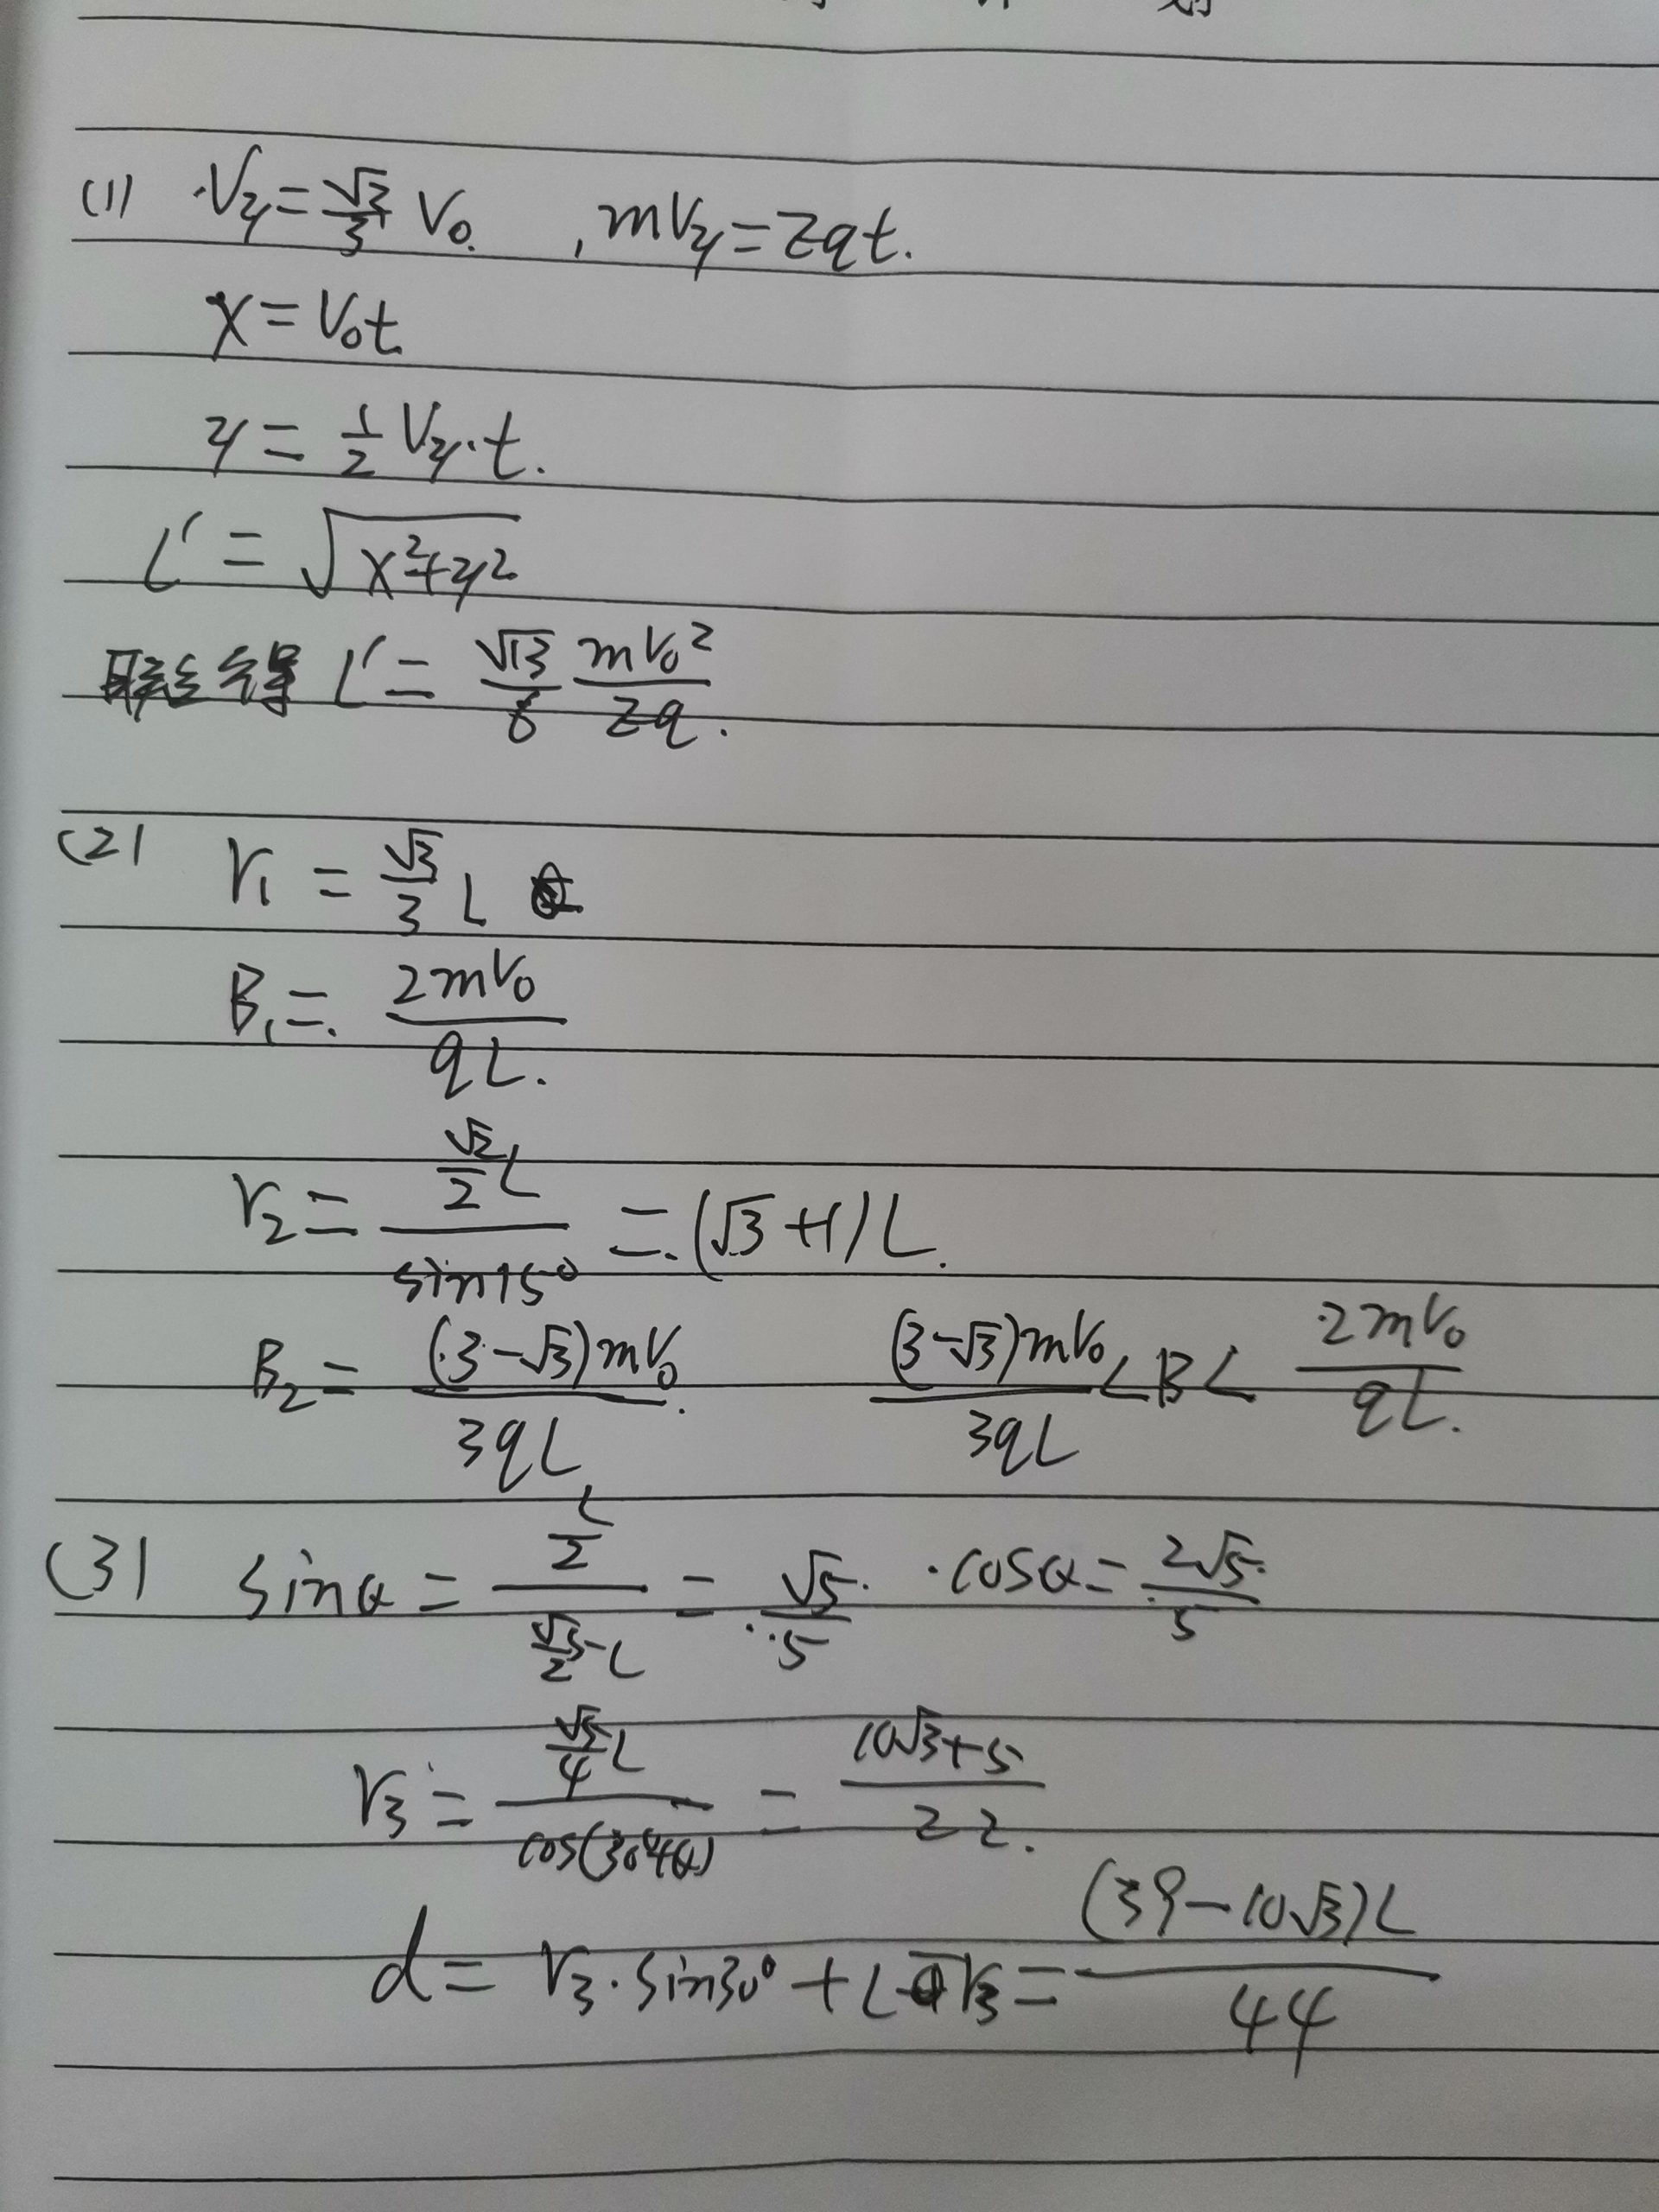 (1) Vy=√3/3 V0. , mVy=Eqt.
x=V0t
y=1/2 Vy·t.
L'=√(x²+y²)
联立得 L'=√13/6 mV0²/Eq.
(2) r1=√3/3 L
B1=2mV0/qL.
r2=(√2/2 L)/sin15°=(√3+1)L.
B2=(3-√3)mV0/3qL (3-√3)mV0/3qL<B<2mV0/qL.
(3) sinα=(L/2)/(√5/2 L)=√5/5 cosα=2√5/5
r3=(√5/4 L)/cos(30°+α)=(10√3+5)/22.
d=r3·sin30°+L-r3=(39-10√3)L/44